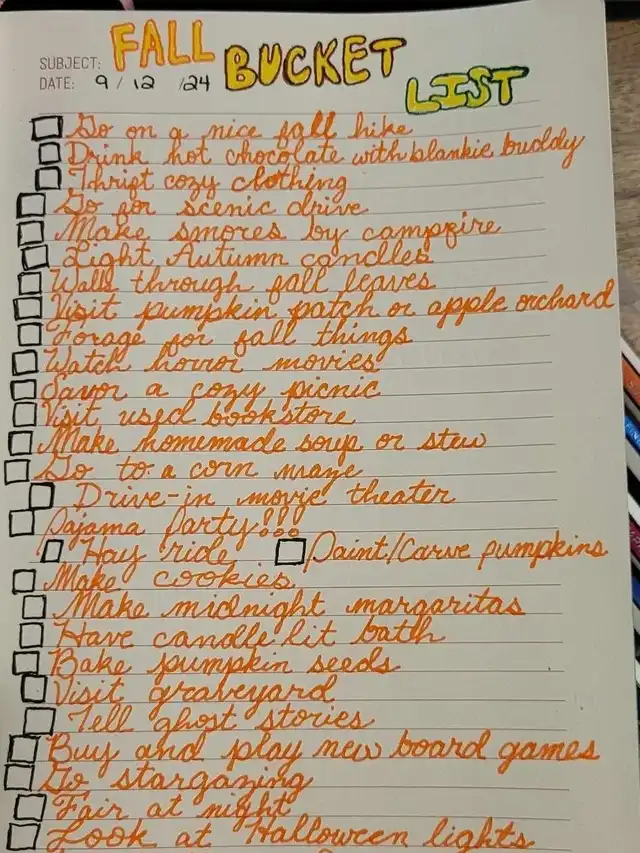 SUBJECT: FALL BUCKET LIST
DATE: 9/12/24
Go on a nice fall hike
Drink hot chocolate with blankie buddy
Thrift cozy clothing
Go for scenic drive
Make smores by campfire
Light Autumn candles
Walk through fall leaves
Visit pumpkin patch or apple orchard
Forage for fall things
Watch horror movies
Savor a cozy picnic
Visit used bookstore
Make homemade soup or stew
Go to a corn maze
Drive-in movie theater
Pajama Party!!!
Hay ride Paint/Carve pumpkins
Make cookies
Make midnight margaritas
Have candle lit bath
Bake pumpkin seeds
Visit graveyard
Tell ghost stories
Buy and play new board games
Go stargazing
Fair at night
Look at Halloween lights